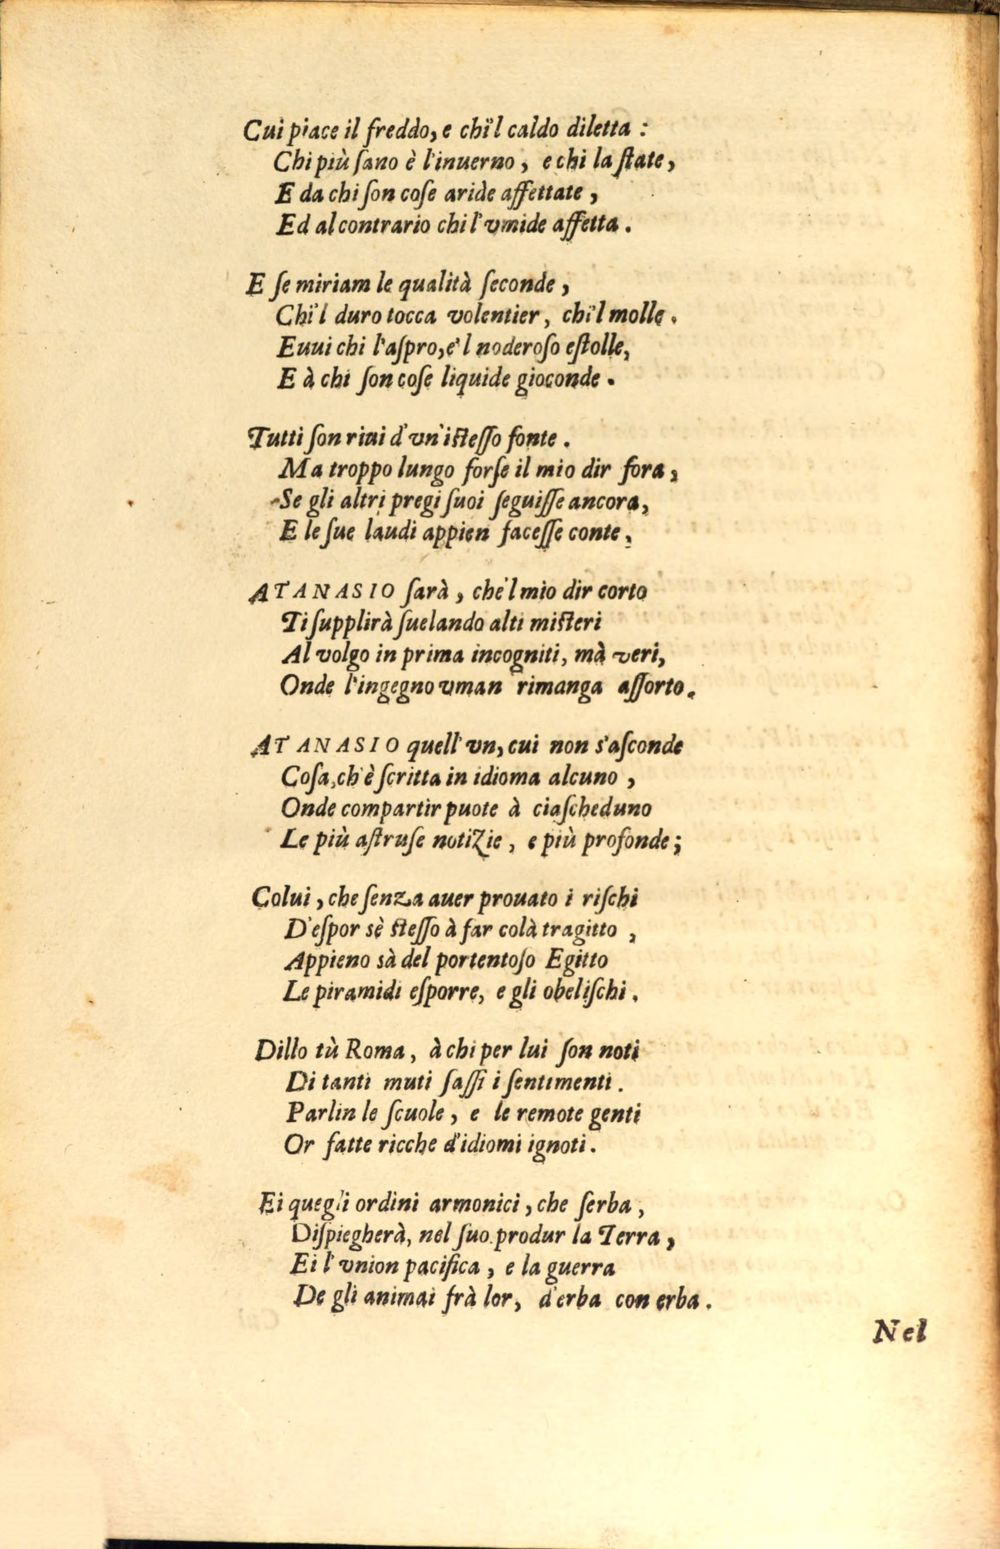 Cui piace il freddo, e chi'l caldo diletta :
Chi più ſano è l'inuerno , e chi la ſtate ,
E da chi ſon coſe aride affettate ,
Ed al contrario chi l'vmide affetta .
E ſe miriam le qualità ſeconde ,
Chi'l duro tocca volentier , chi'l molle .
Euui chi l'aſpro, e'l noderoſo eſtolle,
E à chi ſon coſe liquide gioconde .
Tutti ſon riui d'vn'iſteſſo fonte .
Ma troppo lungo forſe il mio dir fora ,
Se gli altri pregi ſuoi ſeguiſſe ancora,
E le ſue laudi appien faceſſe conte ,
ATANASIO ſarà , che'l mio dir corto
Ti ſupplirà ſuelando alti miſteri
Al volgo in prima incogniti, mà veri,
Onde l'ingegno vman rimanga aſſorto .
ATANASIO quell'vn, cui non s'aſconde
Coſa, ch'è ſcritta in idioma alcuno ,
Onde compartir puote à ciaſcheduno
Le più aſtruſe notiZie , e più profonde ;
Colui , che ſenza auer prouato i riſchi
D'eſpor sè ſteſſo à far colà tragitto ,
Appieno sà del portentoſo Egitto
Le piramidi eſporre, e gli obeliſchi .
Dillo tù Roma , à chi per lui ſon noti
Di tanti muti ſaſſi i ſentimenti .
Parlin le ſcuole , e le remote genti
Or fatte ricche d'idiomi ignoti .
Ei quegli ordini armonici , che ſerba ,
Diſpiegherà, nel ſuo produr la Terra ,
Ei l'vnion pacifica , e la guerra
De gli animai frà lor , d'erba con erba .
Nel